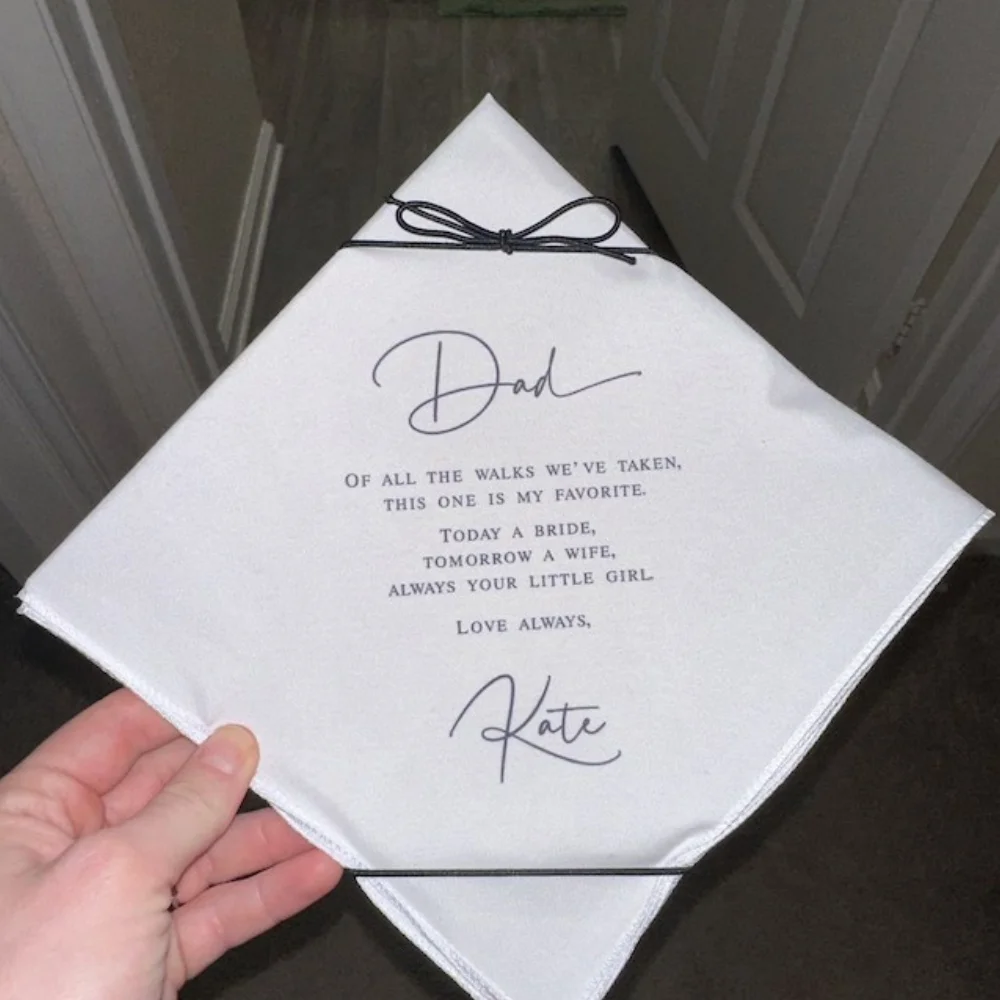 Dad
OF ALL THE WALKS WE'VE TAKEN,
THIS ONE IS MY FAVORITE.
TODAY A BRIDE,
TOMORROW A WIFE,
ALWAYS YOUR LITTLE GIRL.
LOVE ALWAYS,
Kate